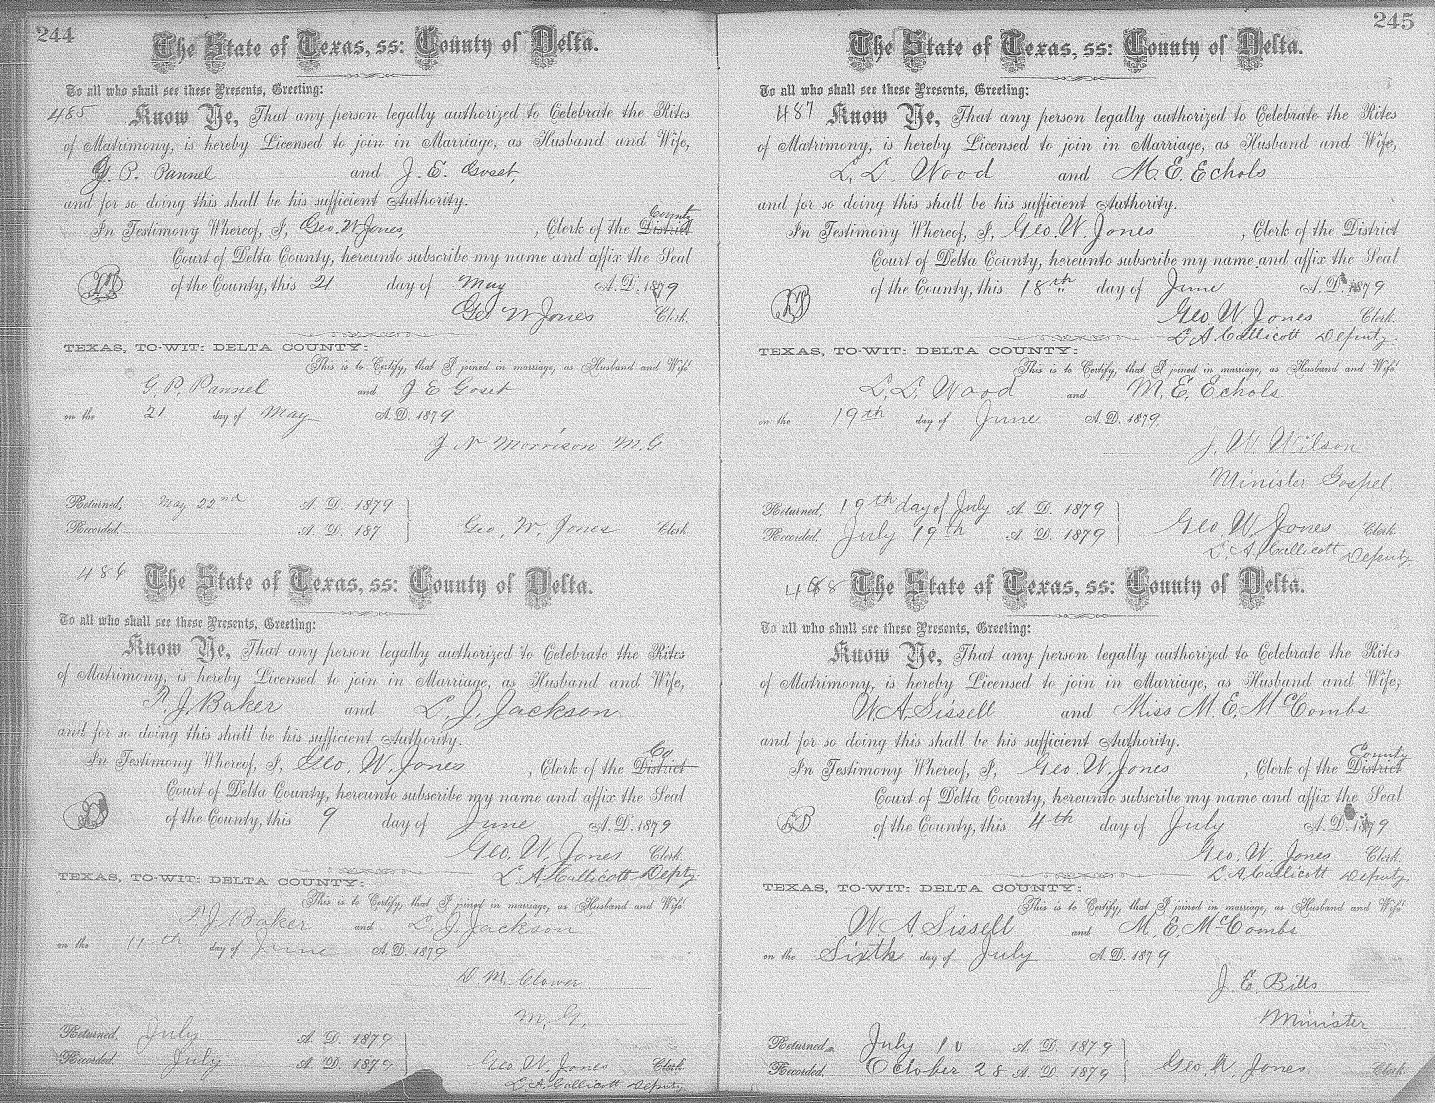 244
The State of Texas, ss: County of Delta.
To all who shall see these Presents, Greeting:
485 Know Ye, That any person legally authorized to Celebrate the Rites
of Matrimony, is hereby Licensed to join in Marriage, as Husband and Wife,
G. P. Pannel and J. E. Goset,
and for so doing this shall be his sufficient Authority.
In Testimony Whereof, I, Geo. W. Jones, , Clerk of the District County
Court of Delta County, hereunto subscribe my name and affix the Seal
of the County, this 21 day of May A.D. 1879
Geo W Jones Clerk.
TEXAS, TO-WIT: DELTA COUNTY:
This is to Certify, that I joined in marriage, as Husband and Wife
G. P. Pannel and J E Goset
on the 21 day of May A.D. 1879
J N Morrison M.G
Returned, May 22nd A. D. 1879
Recorded. A. D. 187 Geo. W. Jones Clerk
486 The State of Texas, ss: County of Delta.
To all who shall see these Presents, Greeting:
Know Ye, That any person legally authorized to Celebrate the Rites
of Matrimony, is hereby Licensed to join in Marriage, as Husband and Wife,
J. Baker and L. J. Jackson
and for so doing this shall be his sufficient Authority.
In Testimony Whereof, I, Geo. W. Jones , Clerk of the District Co
Court of Delta County, hereunto subscribe my name and affix the Seal
of the County, this 9 day of June A.D. 1879
Geo. W. Jones Clerk.
L. A. Callicott Depty.
TEXAS, TO-WIT: DELTA COUNTY:
This is to Certify, that I joined in marriage, as Husband and Wife
J. Baker and L. J. Jackson
on the day of June A.D. 1879
D. M. Clower
M. G.
Returned, July A. D. 1879
Recorded. July A. D. 1879 Geo W. Jones Clerk
L. A. Callicott Deputy
245
The State of Texas, ss: County of Delta.
To all who shall see these Presents, Greeting:
487 Know Ye, That any person legally authorized to Celebrate the Rites
of Matrimony, is hereby Licensed to join in Marriage, as Husband and Wife,
L. L. Wood and M. E. Echols
and for so doing this shall be his sufficient Authority.
In Testimony Whereof, I, Geo. W. Jones , Clerk of the District
Court of Delta County, hereunto subscribe my name and affix the Seal
of the County, this 18th day of June A.D. 1879
Geo W. Jones Clerk.
L A Callicott Deputy.
TEXAS, TO-WIT: DELTA COUNTY:
This is to Certify, that I joined in marriage, as Husband and Wife
L. L. Wood and M. E. Echols
on the 19th day of June A.D. 1879.
J. W. Wilson
Minister Gospel
Returned, 19th day of July A. D. 1879
Recorded. July 19th A. D. 1879 Geo. W. Jones Clerk
L. A. Callicott Deputy
488 The State of Texas, ss: County of Delta.
To all who shall see these Presents, Greeting:
Know Ye, That any person legally authorized to Celebrate the Rites
of Matrimony, is hereby Licensed to join in Marriage, as Husband and Wife,
W. A. Sissell and Miss M. E. McCombs
and for so doing this shall be his sufficient Authority.
In Testimony Whereof, I, Geo. W. Jones , Clerk of the District County
Court of Delta County, hereunto subscribe my name and affix the Seal
of the County, this 4th day of July A.D. 1879
Geo. W. Jones Clerk.
L. A. Callicott Deputy.
TEXAS, TO-WIT: DELTA COUNTY:
This is to Certify, that I joined in marriage, as Husband and Wife
W A Sissell and M. E. McCombs
on the Sixth day of July A.D. 1879
J. E. Bills
Minister
Returned, July 10 A. D. 1879
Recorded. October 28 A. D. 1879 Geo. W. Jones Clerk